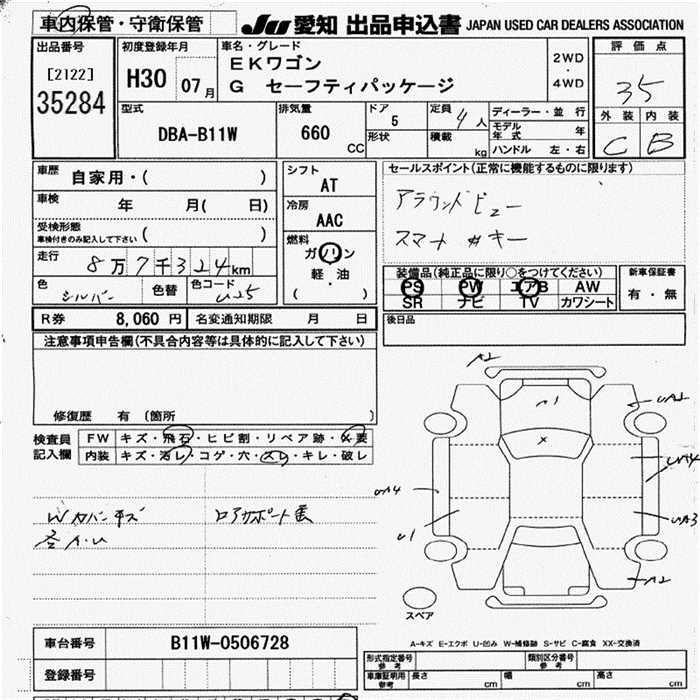 車内保管・守衛保管
JU 愛知 出品申込書 JAPAN USED CAR DEALERS ASSOCIATION
出品番号
[2122]
35284
初度登録年月
H30 07月
車名・グレード
EKワゴン
G セーフティパッケージ
2WD
・
4WD
評価点
35
外装 内装
C B
型式
DBA-B11W
排気量
660 CC
ドア 5
形状
定員 4人
積載 kg
ディーラー・並行
モデル年式 年
ハンドル 左・右
車歴 自家用・( )
車検 年 月( 日)
受検形態
車検付きのみ記入して下さい ( )
走行 8万7千324km
色 シルバー 色替 色コード U25
シフト
AT
冷房
AAC
燃料
ガソリン
軽・油
( )
セールスポイント(正常に機能するものに限ります)
アラウンドビュー
スマートキー
装備品(純正品に限り○をつけてください)
PS PW エアB AW
SR ナビ TV カワシート
新車保証書
有・無
後日品
R券 8,060 円 名変通知期限 月 日
注意事項申告欄(不具合内容等は具体的に記入して下さい)
修復歴 有 〔箇所 〕
検査員記入欄
FW キズ・飛石・ヒビ割・リペア跡・X要
内装 キズ・汚レ・コゲ・穴・スレ・キレ・破レ
Wカバーキズ
ロアサポート
A2
UA2
UA4
UA3
U1
A2
スペア
A-キズ E-エクボ U-凹み W-補修跡 S-サビ C-腐食 XX-交換済
車台番号 B11W-0506728
登録番号
型式指定番号 参考
類別区分番号 参考
車庫証明用参考 長さ cm 幅 cm 高さ cm